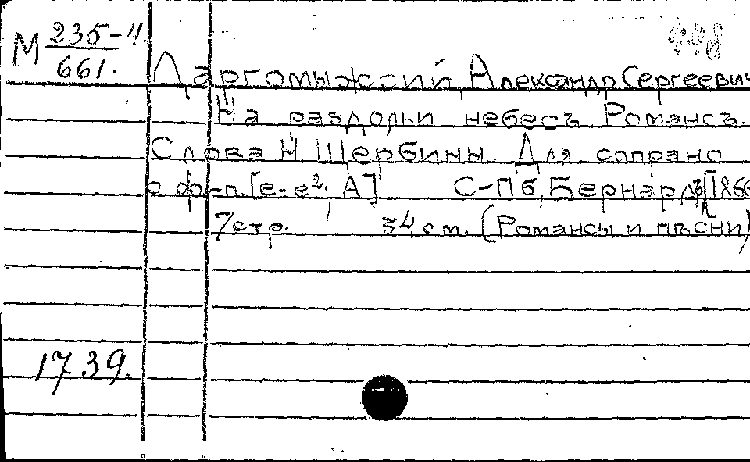 М 235-4
661.
Даргомыжский, Александр Сергеевич
На раздольи небесъ. Романсъ.
Слова Н. Щербины. Для сопрано
с ф-п. [e-e². A] С-Пб, Бернард,
7 стр. 34 см. (Романсы и пѣсни)
1739.